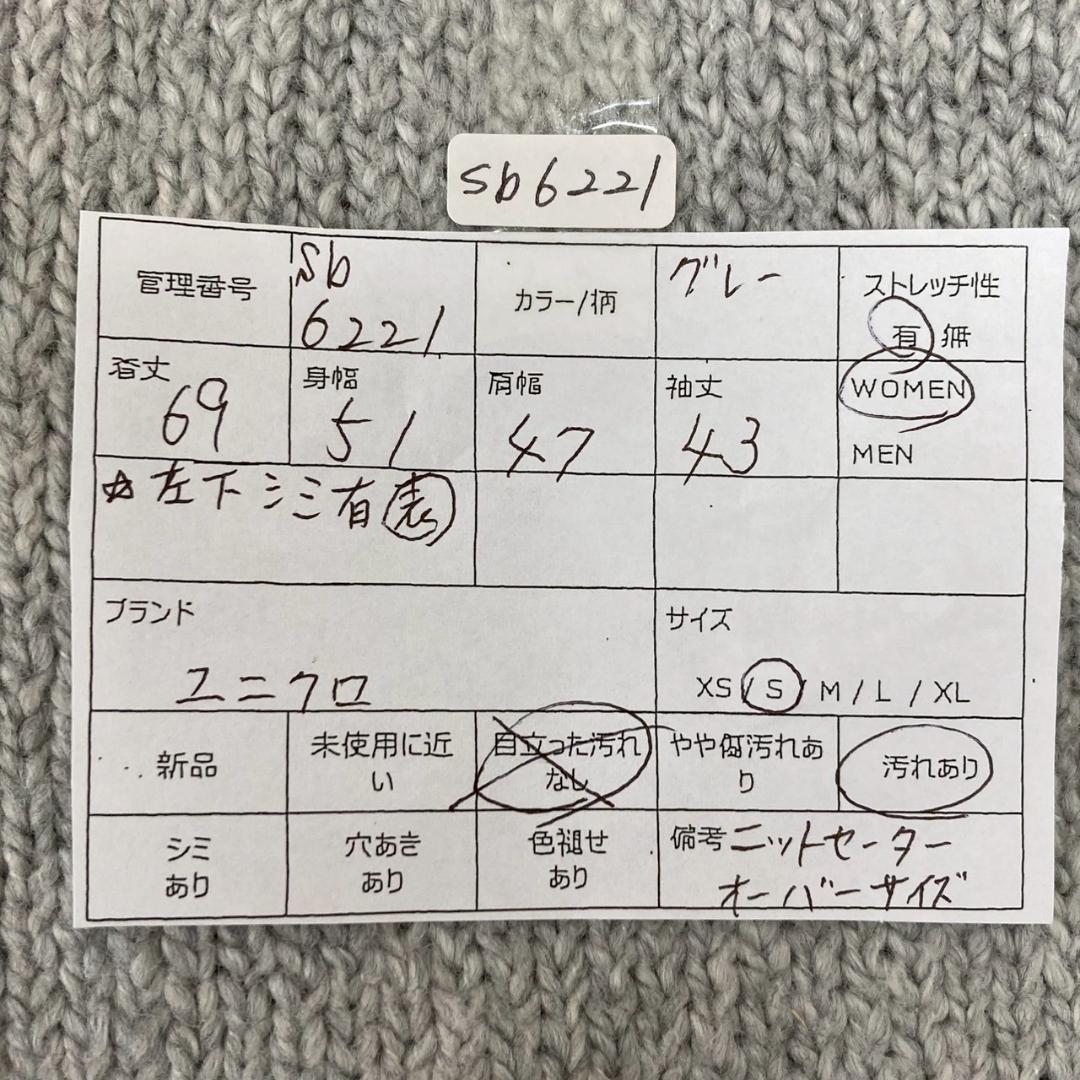 sb6221
管理番号
sb
6221
カラー/柄
グレー
ストレッチ性
有 無
着丈
69
身幅
51
肩幅
47
袖丈
43
WOMEN
MEN
☆左下シミ有 表
ブランド
ユニクロ
サイズ
XS / S / M / L / XL
新品
未使用に近
い
目立った汚れ
なし
やや傷汚れあ
り
汚れあり
シミ
あり
穴あき
あり
色褪せ
あり
備考 ニットセーター
オーバーサイズ